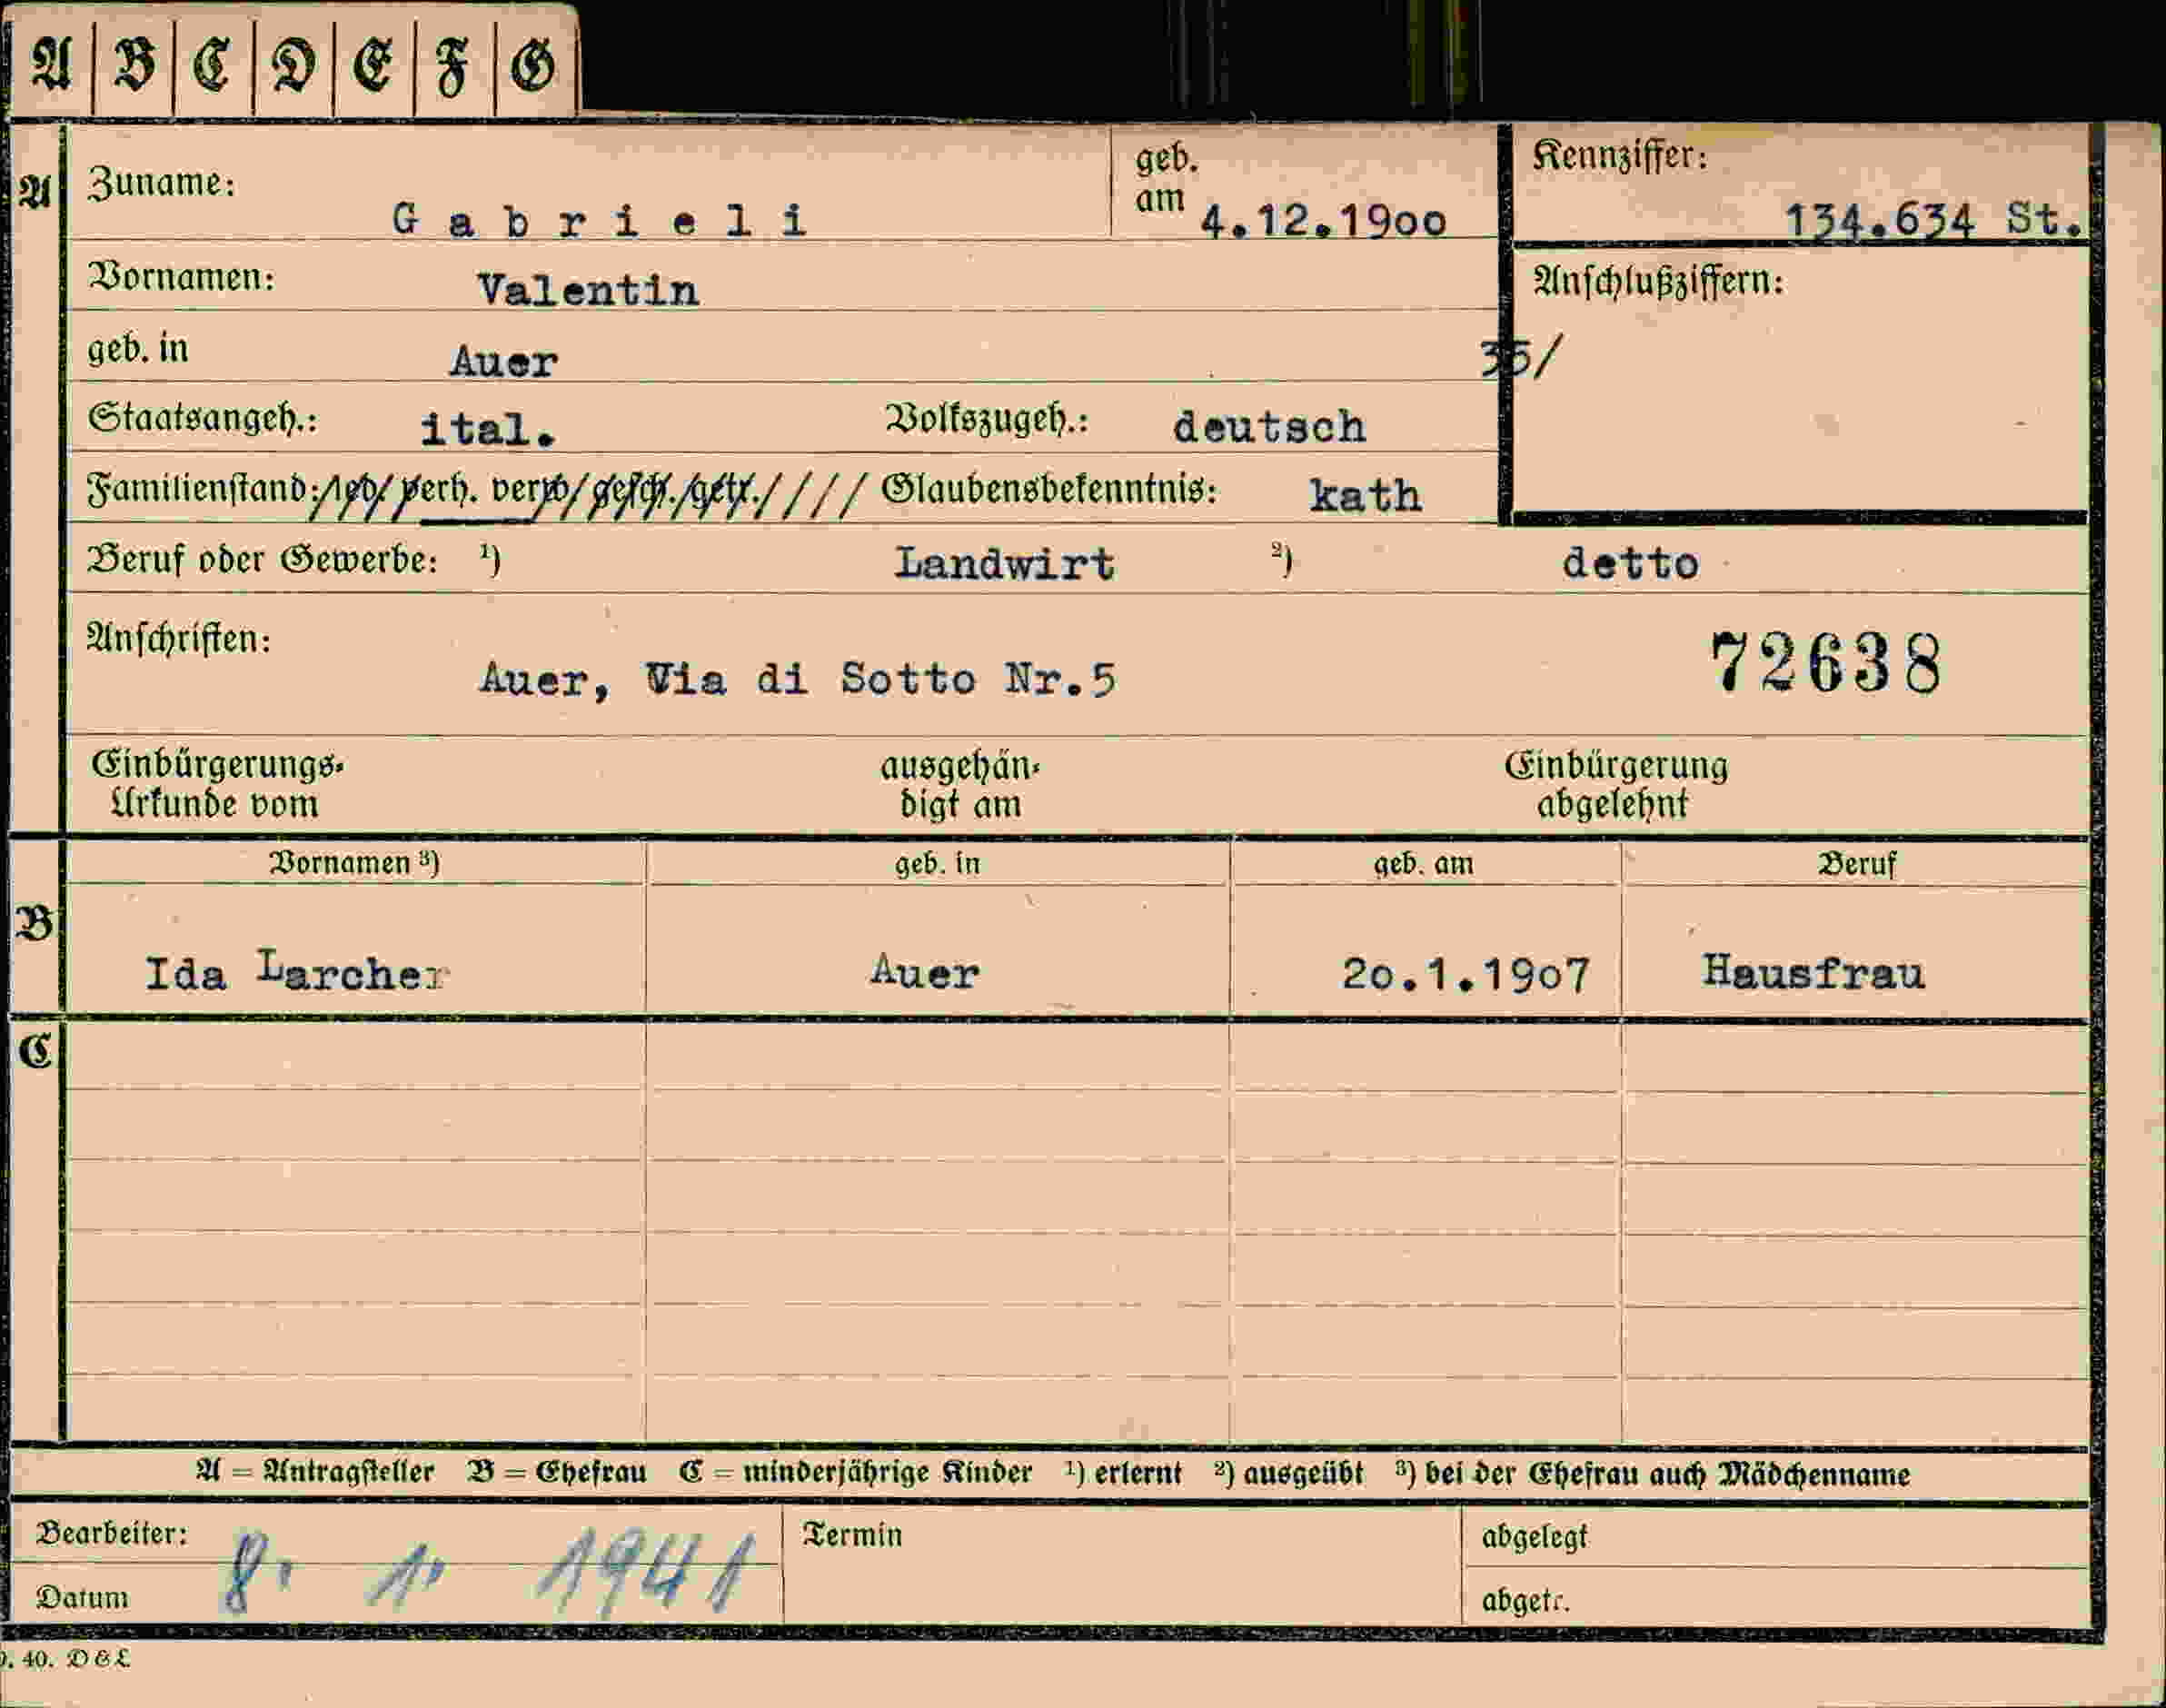 A B C D E F G
A Zuname: Gabrieli geb. am 4.12.19oo Kennziffer: 134.634 St.
Vornamen: Valentin Anschlußziffern:
geb. in Auer 35/
Staatsangeh.: ital. Volkszugeh.: deutsch
Familienstand: led. verh. verw. gesch. getr. Glaubensbekenntnis: kath
Beruf oder Gewerbe: ¹) Landwirt ²) detto
Anschriften: 72638
Auer, Via di Sotto Nr.5
Einbürgerungs- ausgehän- Einbürgerung
Urkunde vom digt am abgelehnt
Vornamen ³) geb. in geb. am Beruf
B
Ida Larcher Auer 2o.1.19o7 Hausfrau
C
A = Antragsteller B = Ehefrau C = minderjährige Kinder ¹) erlernt ²) ausgeübt ³) bei der Ehefrau auch Mädchenname
Bearbeiter: Termin abgelegt
Datum 8. 1. 1941 abgetr.
40. D & L